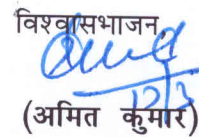 विश्वासभाजन,
12/3
(अमित कुमार)